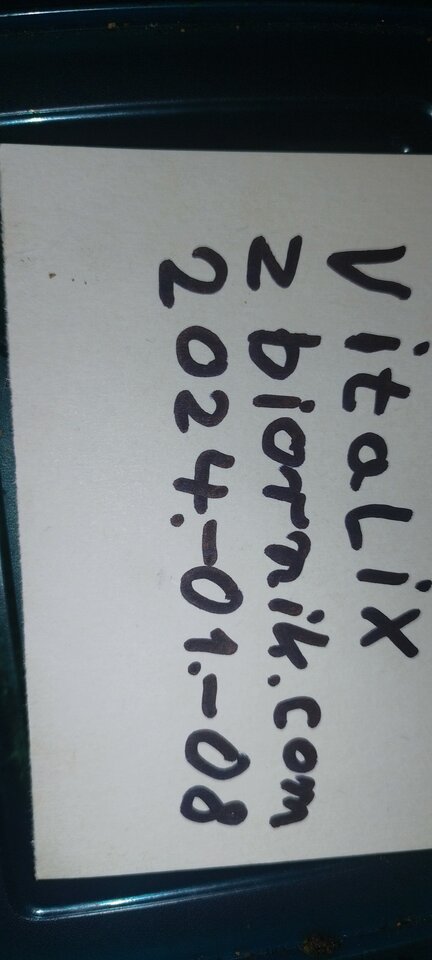 VitaLix
zbiornik.com
2024.-01.-08